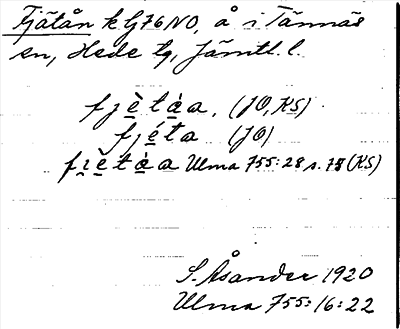 Fjätån k G76NO, å i Tännäs
en, Hede tg, Jämtl. l.
fjètàa, (JO, KS)
fjéta (JO)
fi̯ètàa Ulma 755:28 s. 78 (KS)
S. Åsander 1920
Ulma 755:16:22